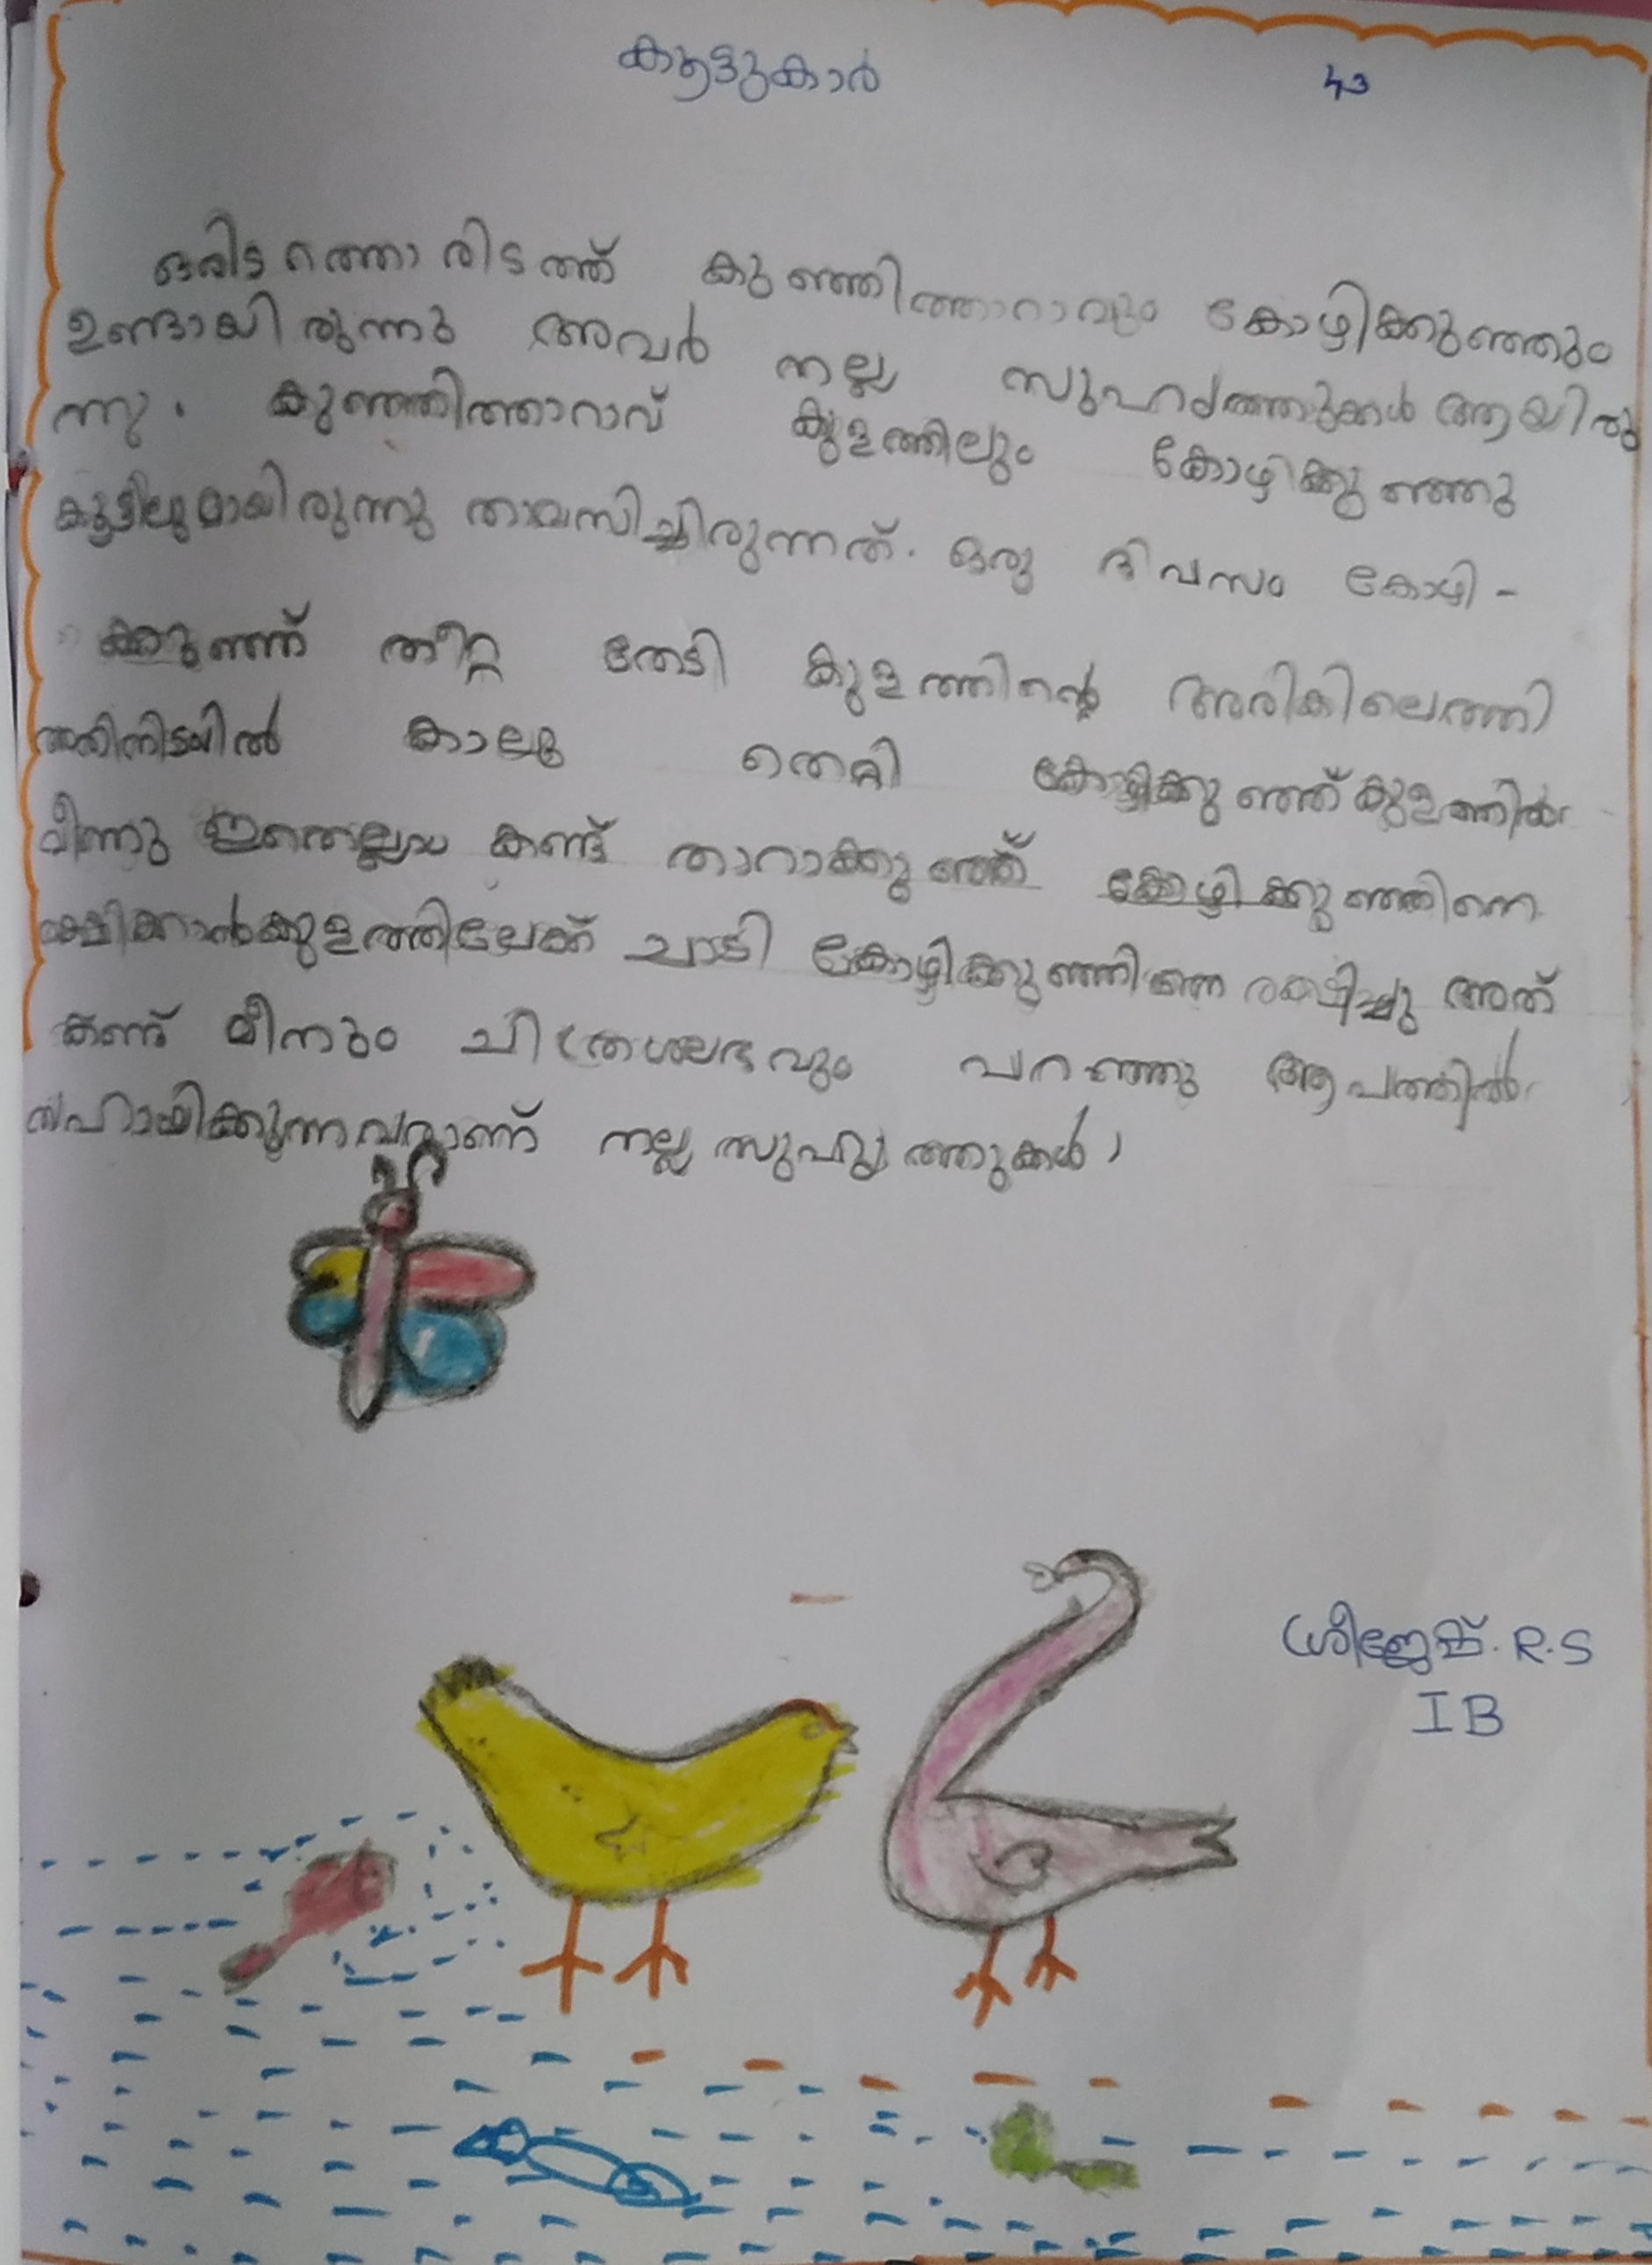 കൂട്ടുകാർ 43
ഒരിടത്തൊരിടത്ത് കുഞ്ഞിത്താറാവും കോഴിക്കുഞ്ഞും
ഉണ്ടായിരുന്നു അവർ നല്ല സുഹൃത്തുക്കൾ ആയിരു
ന്നു. കുഞ്ഞിത്താറാവ് കുളത്തിലും കോഴിക്കുഞ്ഞു
കൂട്ടിലുമായിരുന്നു താമസിച്ചിരുന്നത്. ഒരു ദിവസം കോഴി-
ക്കുഞ്ഞ് തീറ്റ തേടി കുളത്തിന്റെ അരികിലെത്തി
അതിനിടയിൽ കാലു തെറ്റി കോഴിക്കുഞ്ഞ് കുളത്തിൽ
വീണു ഇതെല്ലാം കണ്ട് താറാക്കുഞ്ഞ് കോഴിക്കുഞ്ഞിനെ
രക്ഷിക്കാൻ കുളത്തിലേക്ക് ചാടി കോഴിക്കുഞ്ഞിനെ രക്ഷിച്ചു അത്
കണ്ട് മീനും ചിത്രശലഭവും പറഞ്ഞു ആപത്തിൽ
സഹായിക്കുന്നവരാണ് നല്ല സുഹൃത്തുക്കൾ,
ശ്രീജേഷ്. R.S
I B